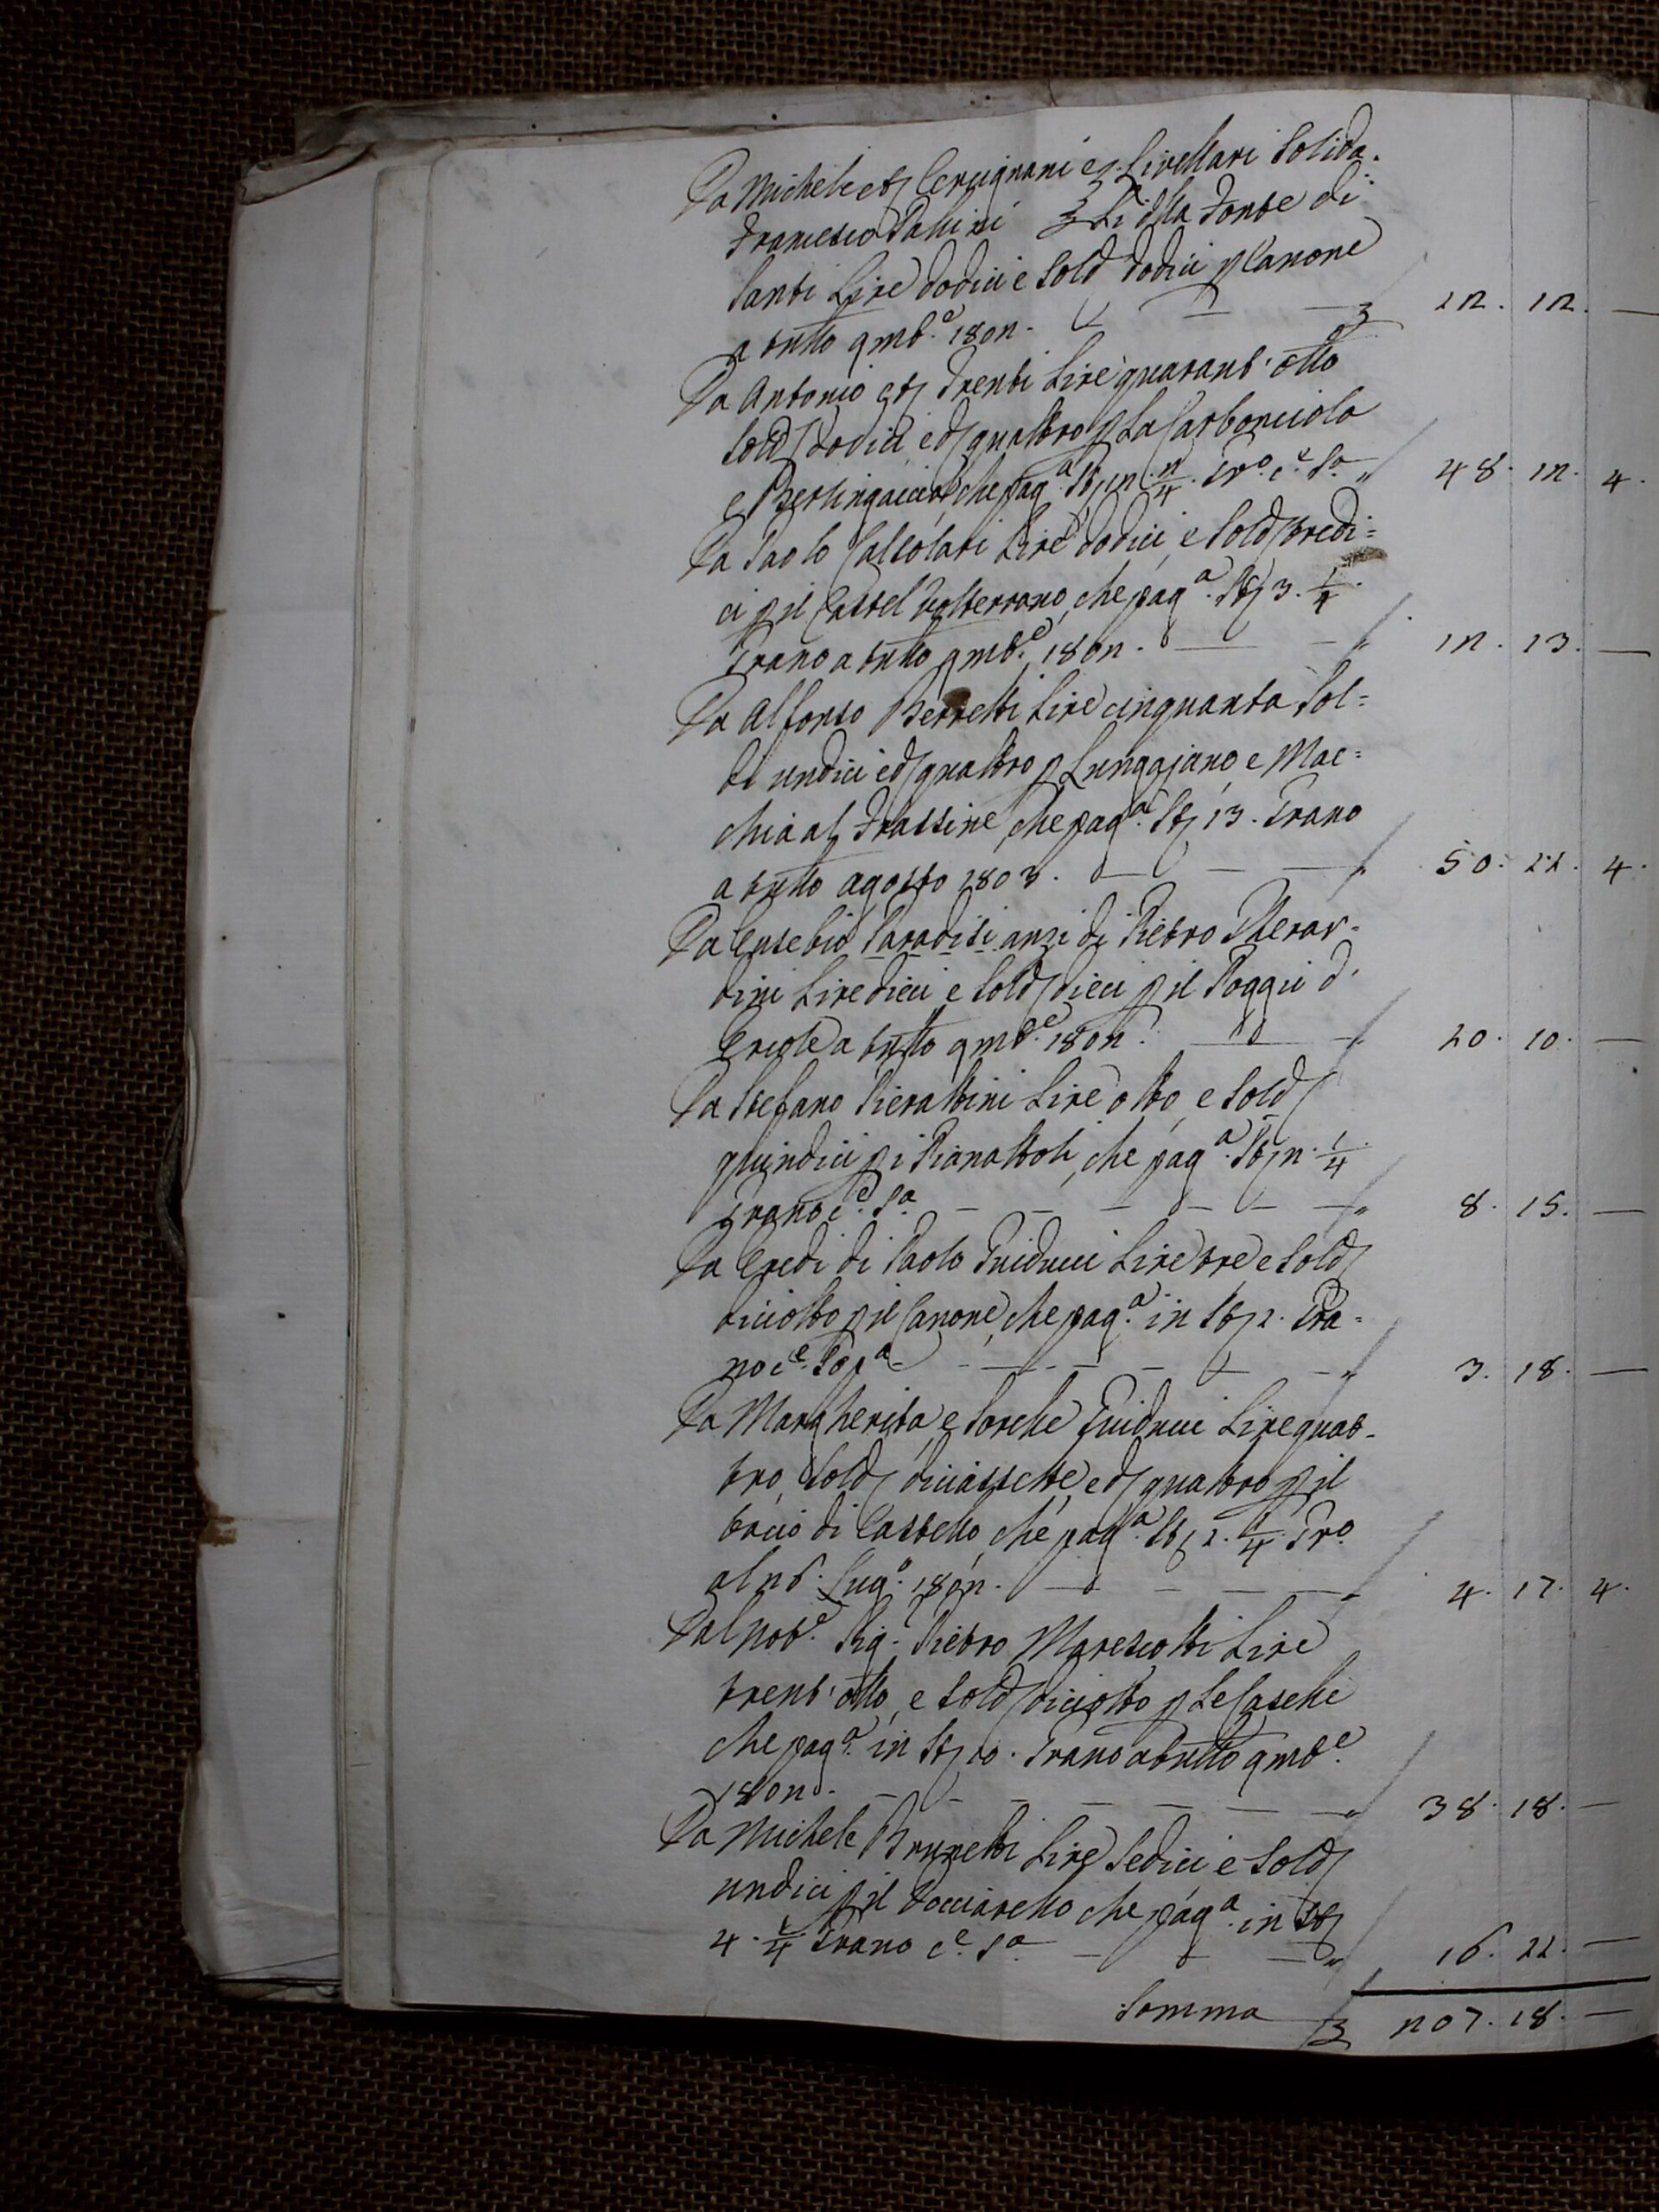 Da Michele et Cercignani e Livellari Solida-
Francesco Pallini } li della Fonte di
Santi Lire dodici e Sold dodici p Canone
a tutto 9mb.e 1802. — 12. 12. —
Da Antonio et Trenti Lire quarant'otto
Sold dodici e d quattro p la Carbonciola
e Berlingaccio, che pag.a St 12 2/4. Gr.o c.e S.a " 48. 12. 4.
Da Paolo Calsolari Lire dodici, e Sold tredi=
ci p il Castel Volterrano, che pag.a St 3. 1/4.
Grano a tutto 9mb.e 1802. — " 12. 13. —
Da Alfonso Berretti Lire cinquanta Sol=
di undici e d quattro p Lungajano e Mac=
chia al Frassine, che pag.a St 13. Grano
a tutto agosto 1803. — " 50. 11. 4.
Da Eusebio Paradisi anzi di Pietro Gherar=
dini Lire dieci e Sold dieci p il Poggio d'
Ercole a tutto 9mb.e 1802. — " 10. 10. —
Da Stefano Pierattini Lire otto, e Sold
quindici p i Pianattoli, che pag.a St 2. 1/4
Grano c.e S.a — " 8. 15. —
Da Eredi di Paolo Guiducci Lire tre e Sold
diciotto p il Canone, che pag.a in St 1. Gra=
no c.e Sop.a — " 3. 18. —
Da Margherita, e Sorelle Guiducci Lire quat-
tro, Sold diciassette, e d quattro p il
Bacio di Castello, che pag.a St 1. 1/4. Gr.o
al 26. Lug.o 1802. — " 4. 17. 4.
Dal Nob.e Sig. Pietro Marescotti Lire
trent'otto, e Sold diciotto p Le Caselle
che pag.a in St 10. Grano a tutto 9mb.e
1802. — " 38. 18. —
Da Michele Brunetti Lire Sedici e Sold
undici p il Docciarello che pag.a in St
4. 1/4 Grano c.e S.a — " 16. 11. —
Somma 207. 18. —